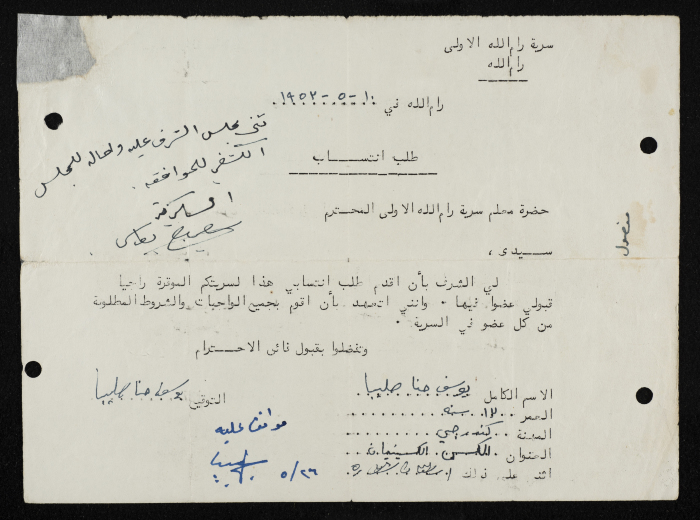 سرية رام الله الاولى
رام الله
رام الله في ١٠-٥-١٩٥٢
طلب انتساب
حضرة معلم سرية رام الله الاولى المحترم
سيدى ،
لي الشرف بأن اقدم طلب انتسابي هذا لسريتكم الموقرة راجيا
قبولي عضوا فيها . وانني اتعهد بأن اقوم بجميع الواجبات والشروط المطلوبة
من كل عضو في السرية .
وتفضلوا بقبول فائق الاحترام
الاسم الكامل يوسف حنا صليبا
التوقيع يوسف حنا صليبا
العمر ١٢ سنه
المهنة كندرجي
العنوان
اثنى على ذلك
موافق عليه
٢٦/٥
مجلس الشرف عليه للمجلس
للموافقه
مفصول